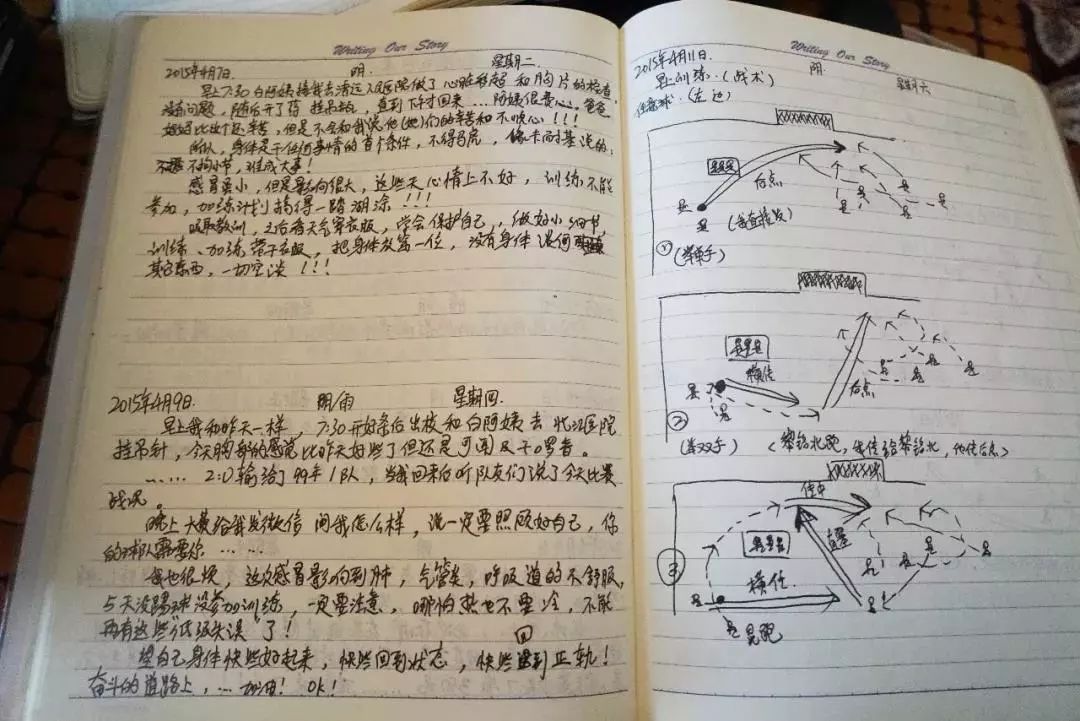 Writing Our Story
2015年4月7日. 阴. 星期二.
早上7:30白阿姨接我去清远人民医院做了心脏彩超和胸片的检查,
没有问题,随后开了药 挂吊瓶,直到下午才回来...阿姨很费心,爸爸
妈妈比我还辛苦,但是不会和我说他(她)们的辛苦和不顺心!!!
所以,身体是干任何事情的首个条件,不得马虎,像卡耐基说的:
不拘小节,难成大事!
感冒虽小,但是影响很大,这些天心情上不好,训练不能
参加,加练计划搞得一踏湖涂!!!
吸取教训,之后看天气穿衣服,学会保护自己,做好小细节,
训练、加练带干衣服,把身体放第一位,没有身体谈何
其它东西,一切空谈!!!
2015年4月9日. 阴雨 星期四.
早上我和昨天一样,7:30开好条后出校和白阿姨去北江医院
挂吊针,今天胸部的感觉比昨天好些了但还是可闻及干啰音。
...... 2:0输给了99年1队,当我回来后听队友们说了今天比赛
战况。
晚上大黄给我发微信 问我怎么样,说一定要照顾好自己,你
的球队需要你......
我也很烦,这次感冒影响到肺,气管炎,呼吸道的不舒服,
5天没踢球没参加训练,一定要注意,哪怕热也不要冷,不能
再有这些"低级失误"了!
望自己身体快些好起来,快些回到状态,快些回到正轨!
奋斗的道路上,... 加油! OK!
Writing Our Story
2015年4月11日. 阴. 星期六
早上训练.(战术)
任意球.(左边)
后点
(我直接发)
① (举单手)
横传
后点
②
(举双手) (黎铭北跑,我传给黎铭北,他传后点)
传中
直塞
③
横传
晃跑